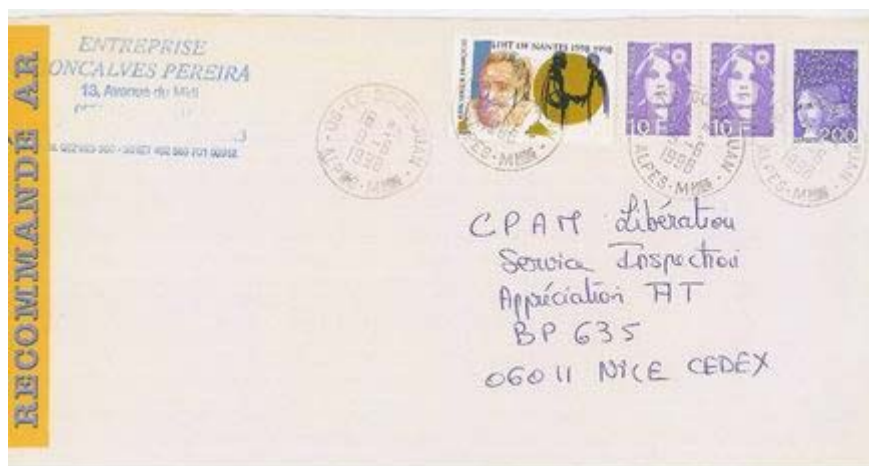 RECOMMANDÉ AR
ENTREPRISE
ONCALVES PEREIRA
13, Avenue du Midi
EDIT DE NANTES 1598-1998
RÉPUBLIQUE FRANÇAISE
10F
10F
2,00
1998
ALPES-M
1998
ALPES-M
1998
CPAM Libération
Service Inspection
Appréciation AT
BP 635
06011 NICE CEDEX